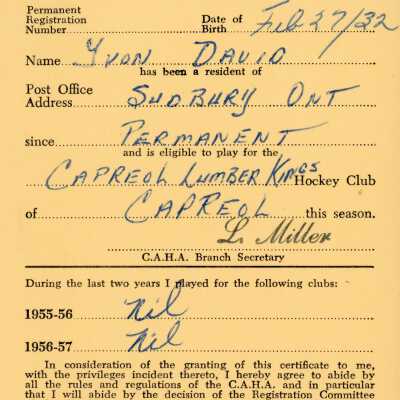 Permanent
Registration
Number
Date of
Birth Feb 27/32
Name Yvon David
has been a resident of
Post Office
Address Sudbury Ont
since Permanent
and is eligible to play for the
Capreol Lumber Kings Hockey Club
of Capreol this season.
L. Miller
C.A.H.A. Branch Secretary
During the last two years I played for the following clubs:
1955-56 Nil
1956-57 Nil
In consideration of the granting of this certificate to me,
with the privileges incident thereto, I hereby agree to abide by
all the rules and regulations of the C.A.H.A. and in particular
that I will abide by the decision of the Registration Committee